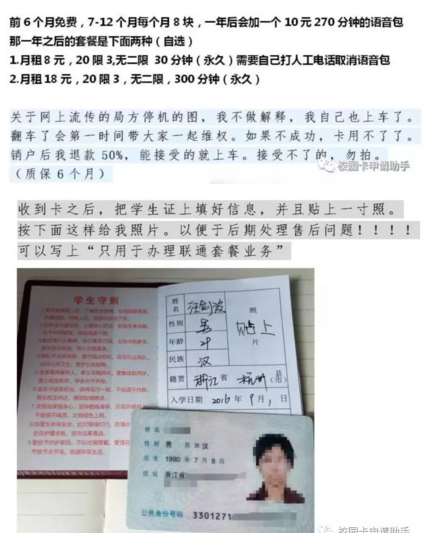 前 6 个月免费，7-12 个月每个月 8 块，一年后会加一个 10 元 270 分钟的语音包
那一年之后的套餐是下面两种（自选）
1.月租 8 元，20 限 3,无二限  30 分钟（永久）需要自己打人工电话取消语音包
2.月租 18 元，20 限 3，无二限，300 分钟（永久）
关于网上流传的局方停机的图，我不做解释，我自己也上车了。
翻车了会第一时间带大家一起维权。如果不成功，卡用不了了。
销户后我退款 50%，能接受的就上车。接受不了的，勿拍。
（质保 6 个月）
校园卡申请助手
收到卡之后，把学生证上填好信息，并且贴上一寸照。
按下面这样给我照片。以便于后期处理售后问题！！！！
可以写上“只用于办理联通套餐业务”
学生守则
姓名
性别 男
年龄 29
民族 汉
籍贯 浙江 省 杭州
入学日期 2016 年 9 月 1
照片
贴上
姓名
性别 男 民族 汉
出生 1990 年 7 月 8 日
住址 浙江省
公民身份号码 3301271
校园卡申请助手